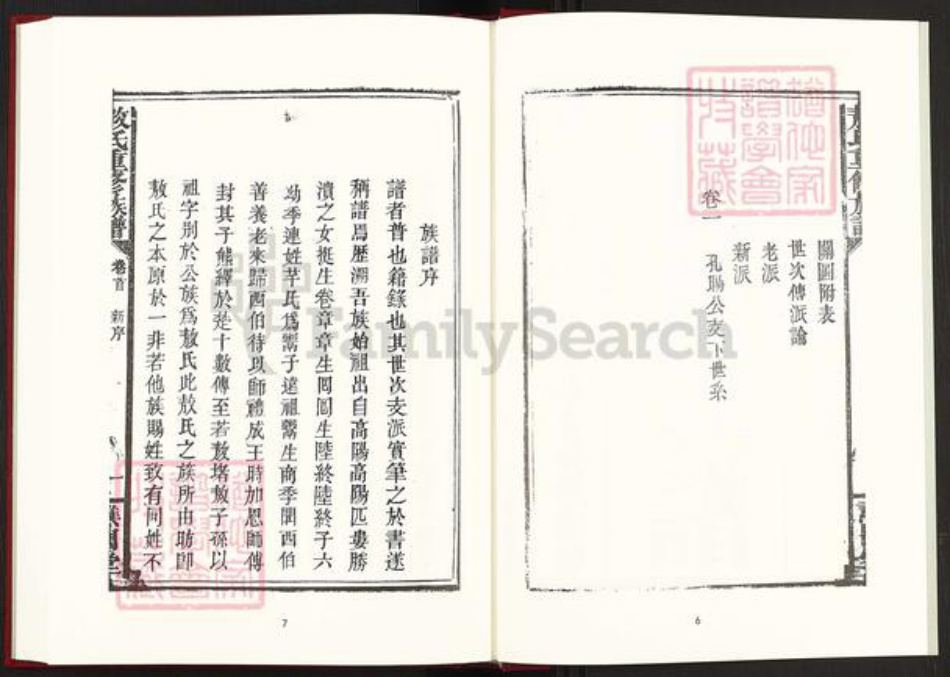 關圖附表
世次傳派論
老派
新派
卷一
孔賜公支下世系
6
族譜序
譜者普也籍錄也其世次支派實筆之於書遂
稱譜焉歷溯吾族始祖出自高陽高陽匹婁勝
潰之女挺生卷章章生囘囘生陸終陸終子六
㓜季連姓芊氏爲鬻子遠祖鬻生商季聞西伯
善養老來歸西伯待以師禮成王時加恩師傅
封其子熊繹於楚十數傳至若敖堵敖子孫以
祖字别於公族爲敖氏此敖氏之族所由昉卽
敖氏之本原於一非若他族賜姓致有同姓不
敖氏重修族譜
卷首
新序
一
7
FamilySearch